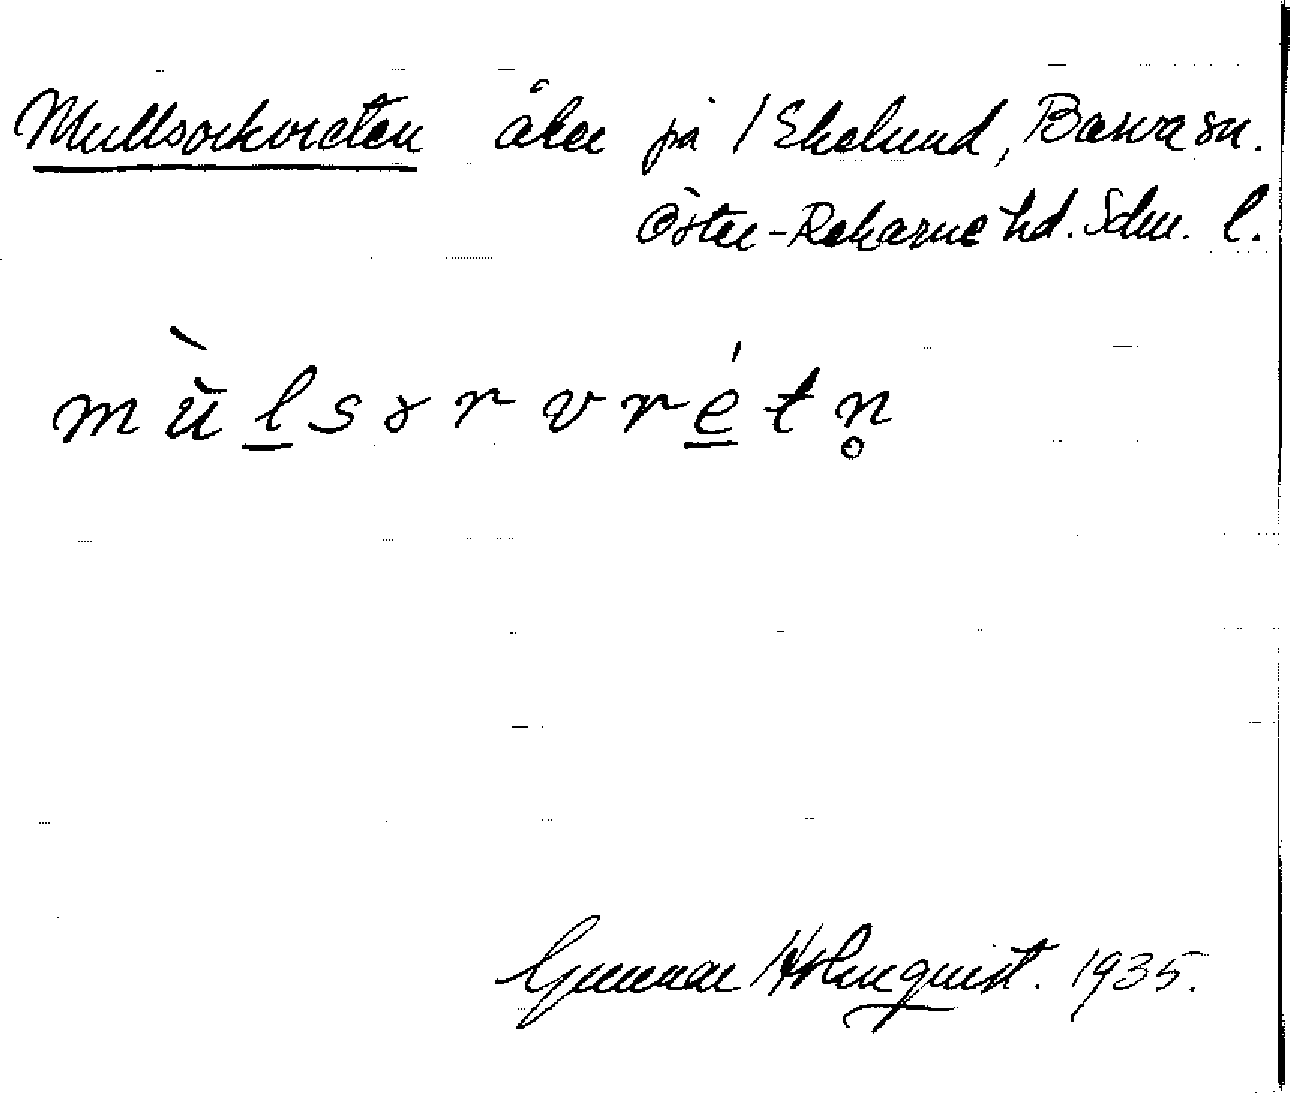 Mullsorkvreten åker på / Ekelund, Barva sn.
Öster-Rekarne hd. Sdm. l.
mùlsɤrvrétn̥
Gunnar Holmquist. 1935.